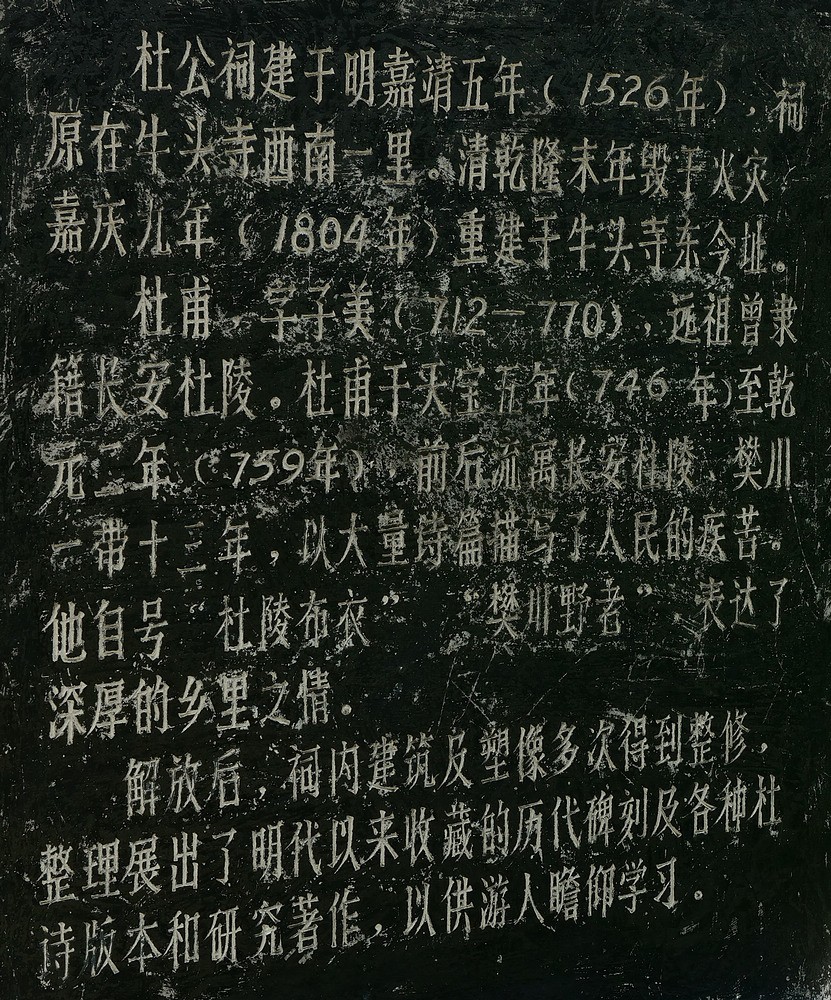 杜公祠建于明嘉靖五年（1526年），祠
原在牛头寺西南一里。清乾隆末年毁于火灾
嘉庆九年（1804年）重建于牛头寺东今址。
杜甫，字子美（712—770），远祖曾隶
籍长安杜陵。杜甫于天宝五年（746年）至乾
元二年（759年），前后流寓长安杜陵、樊川
一带十三年，以大量诗篇描写了人民的疾苦。
他自号“杜陵布衣” “樊川野老” 表达了
深厚的乡里之情。
解放后，祠内建筑及塑像多次得到整修，
整理展出了明代以来收藏的历代碑刻及各种杜
诗版本和研究著作，以供游人瞻仰学习。